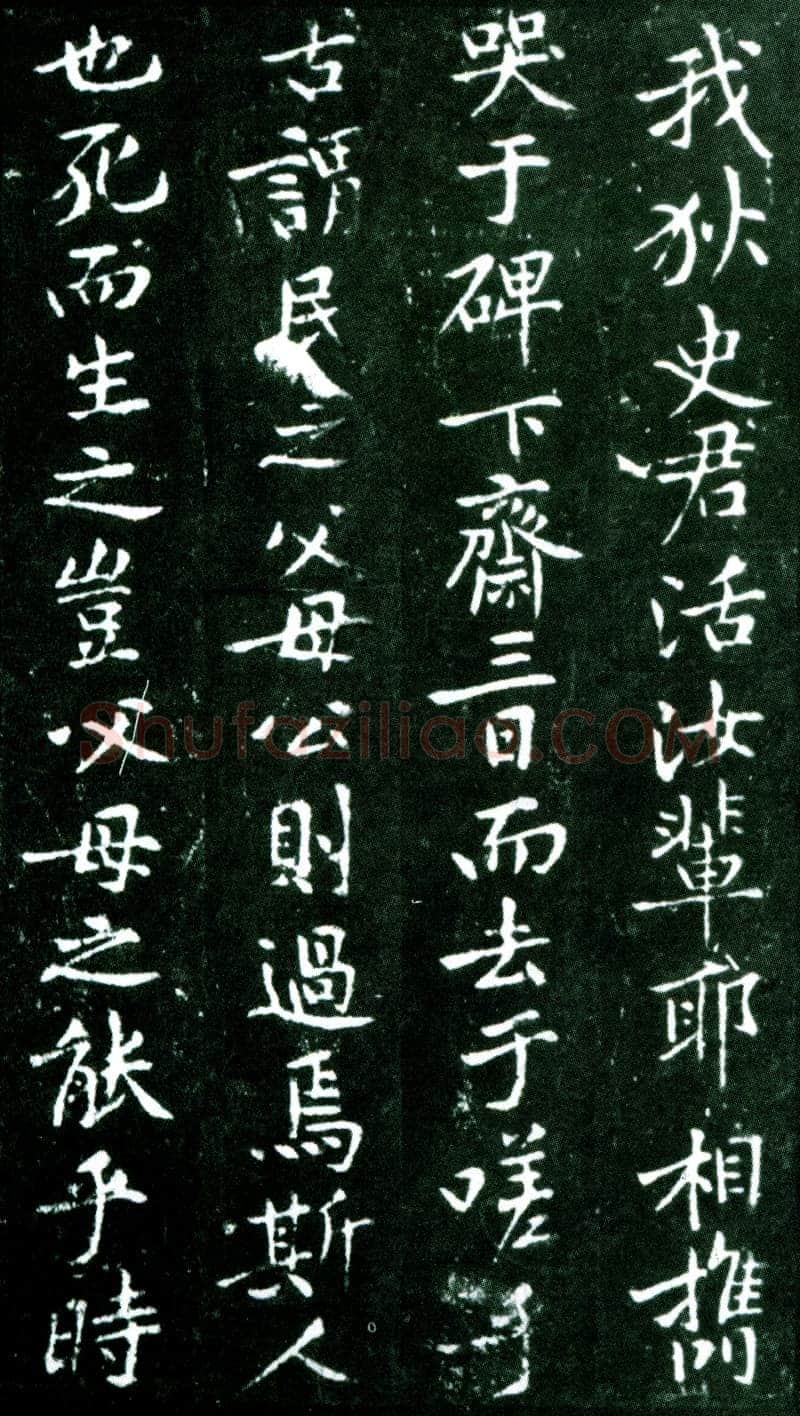 我狄史君活汝輩耶相攜
哭于碑下齋三日而去于嗟
古謂民之父母公則過焉斯人
也死而生之豈父母之能乎時
Shufaziliao.COM